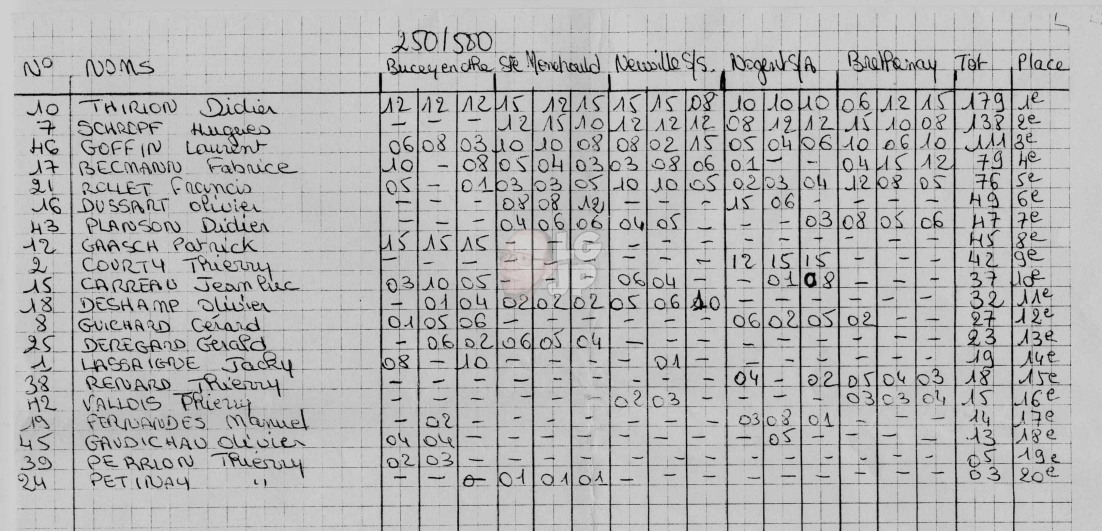 250/500
N° NOMS Buceyenothe Ste Menehould Neuville S/S. Nogent S/A Brethenay Tot Place
10 THIRION Didier 12 12 12 15 12 15 15 15 08 10 10 10 06 12 15 179 1e
7 SCHROPF Hugues – – – 12 15 10 12 12 12 08 12 12 15 10 08 138 2e
46 GOFFIN Laurent 06 08 03 10 10 08 08 02 15 05 04 06 10 06 10 111 3e
17 BECMANN Fabrice 10 – 08 05 04 03 03 08 06 01 – – 04 15 12 79 4e
21 ROLLET Francis 05 – 01 03 03 05 10 10 05 02 03 04 12 08 05 76 5e
16 DUSSART Olivier – – – 08 08 12 – – – 15 06 – – – – 49 6e
43 PLANSON Didier – – – 04 06 06 04 05 – – – 03 08 05 06 47 7e
12 GAASCH Patrick 15 15 15 – – – – – – – – – – – – 45 8e
2 COURTY Thierry – – – – – – – – – 12 15 15 – – – 42 9e
15 CARREAU Jean Luc 03 10 05 – – – 06 04 – – 01 08 – – – 37 10e
18 DESHAMP Olivier – 01 04 02 02 02 05 06 10 – – – – – – 32 11e
8 GUICHARD Gérard 01 05 06 – – – – – – 06 02 05 02 – – 27 12e
25 DEREGARD Gérald – 06 02 06 05 04 – – – – – – – – – 23 13e
1 LASSAIGNE Jacky 08 – 10 – – – – 01 – – – – – – – 19 14e
38 RENARD Thierry – – – – – – – – – 04 – 02 05 04 03 18 15e
42 VALLOIS Thierry – – – – – – 02 03 – – – – 03 03 04 15 16e
19 FERNANDES Manuel – 02 – – – – – – – 03 08 01 – – – 14 17e
45 GAUDICHAU Olivier 04 04 – – – – – – – – 05 – – – – 13 18e
39 PERRION Thierry 02 03 – – – – – – – – – – – – – 05 19e
24 PETINAY " – – – 01 01 01 – – – – – – – – – 03 20e